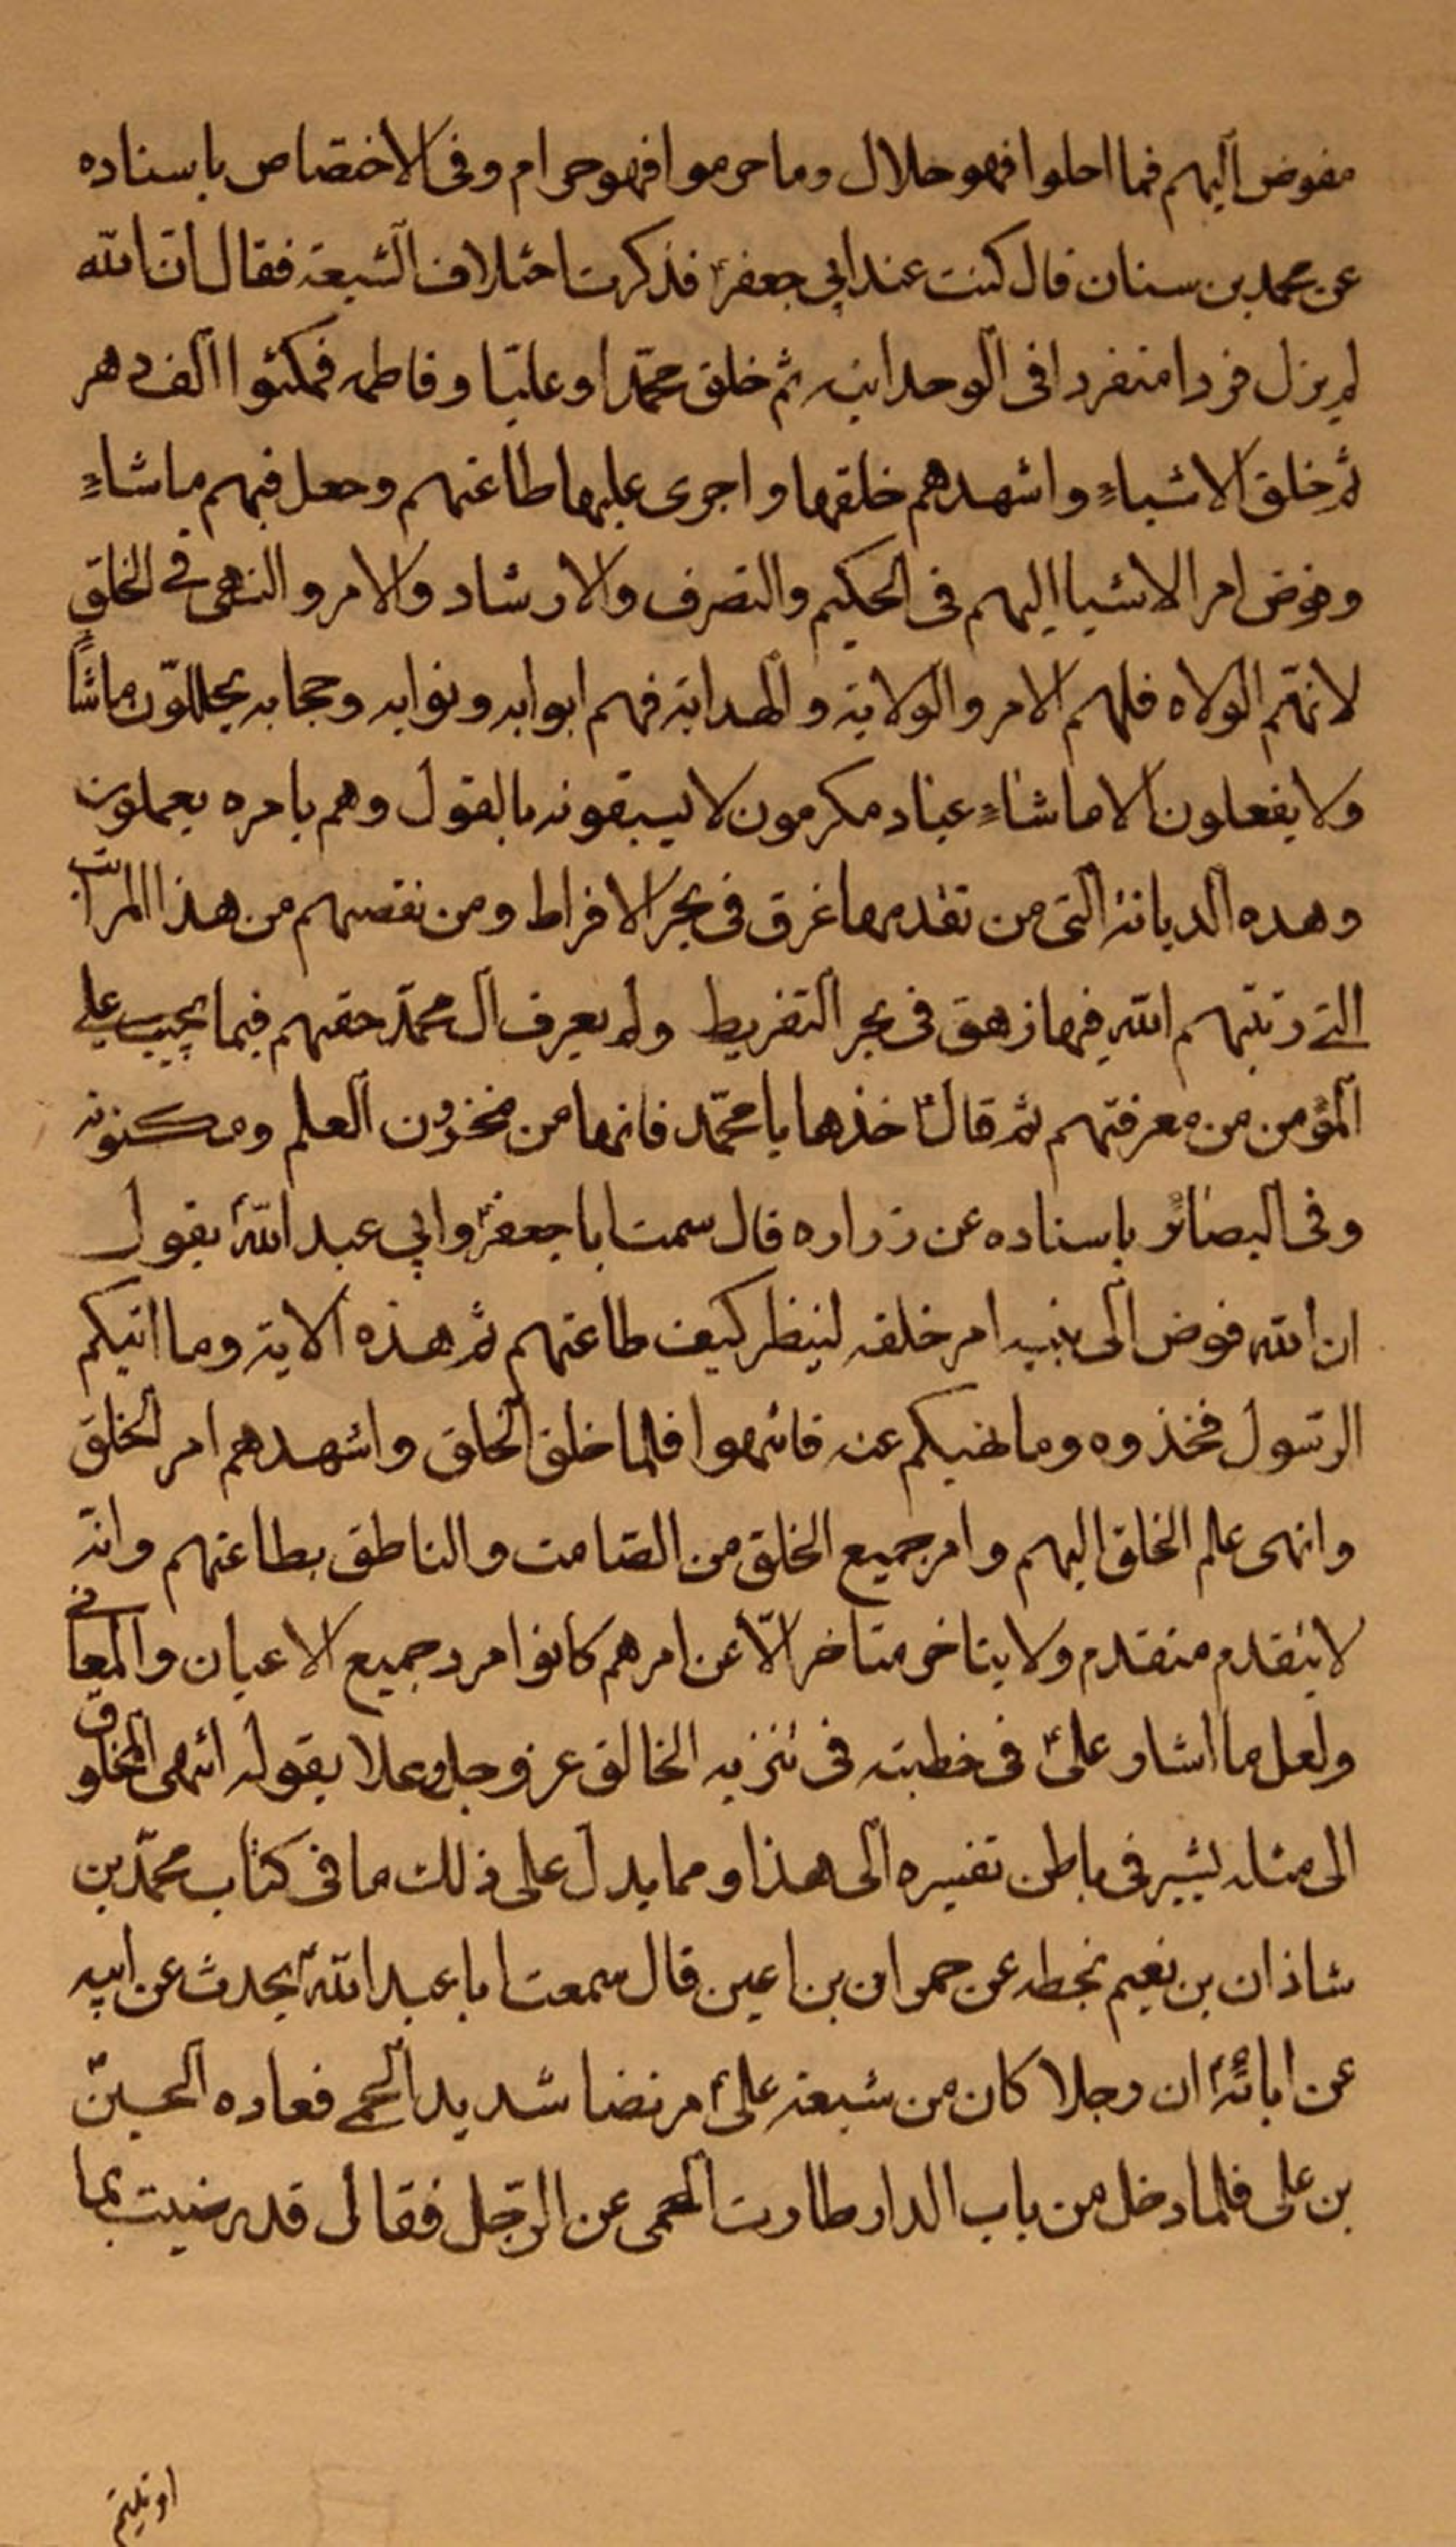 مفوض اليهم فما احلوا فهو حلال وما حرموا فهو حرام وفى الاختصاص باسناده
عن محمد بن سنان قال كنت عند ابي جعفرؑ فذكرت اختلاف الشيعة فقال ان الله
لم يزل فردا متفردا فى الوحدانيه ثم خلق محمّدا وعليّا وفاطمه فمكثوا الف دهر
ثم خلق الاشياء واشهدهم خلقها واجرى عليها طاعتهم وجعل فيهم ما شاء
وفوض امر الاشيا اليهم فى الحكيم والتصرف والارشاد والامر والنهى في الخلق
لانهّم الولاه فلهم الامر والولاية والهداية فهم ابوابه ونوابه وحجابه يحللوّن ما شاء
ولا يفعلون الا ما شاء عباد مكرمون لا يسبقونه بالقول وهم بامره يعملون
وهده الديانة التى من تقدمها غرق فى بحر الافراط ومن نقصهم من هذا المراتب
التي رتبّهم الله فيها زهق فى بحر التفريط ولم يعرف آل محمدّ حقهم فيما يجب علي
المؤمن من معرفتهم ثم قالؑ خذها يا محمّد فانها من مخزون العلم ومكنونه
وفى البصائر باسناده عن زراره قال سمت اباجعفرؑ وابي عبد اللهؑ يقول
ان الله فوض الى نبيه امر خلقه لينظر كيف طاعتهم ثم هذه الاية وما اتيكم
الرسّول فخذوه وما نهيكم عنه فانتهوا فلما خلق الخلق واشهدهم امر الخلق
وانهى علم الخلق اليهم وامر جميع الخلق من الصّامت والناطق بطاعتهم وانّه
لا يتقدم متقدم ولا يتاخر متاخر الّا عن امرهم كانوا مرد جميع الاعيان والمعاني
ولعل ما اشار علىؑ فى خطبته فى تنزيه الخالق عز وجل وعلا بقوله انتهى المخلوق
الى مثله يشير فى باطن تفسيره الى هذا ومما يدل على ذلك ما فى كتاب محمدّ بن
شاذان بن نعيم بخطه عن حمران بن اعين قال سمعت ابا عبد اللهؑ يحدث عن ابيه
عن ابائهؑ ان رجلا كان من شيعة علىؑ مريضا شديد الحمي فعاده الحسينؑ
بن على فلما دخل من باب الدار طارت الحمى عن الرّجل فقال قد رضيت بما
اوتيتم